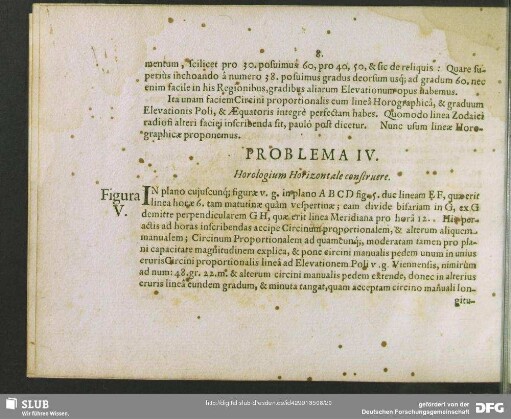 8.
mentum, scilicet pro 30. posuimus 60, pro 40, 50, & sic de reliquis : Quare su-
perius inchoando à numero 38. posuimus gradus deorsum usq; ad gradum 60. nec
enim facile in his Regionibus, gradibus aliarum Elevationum opus habemus.
Ita unam faciem Circini proportionalis cum lineâ Horographicâ, & graduum
Elevationis Poli, & Æquatoris integrè perfectam habes. Quomodo linea Zodaici
radiosi alteri faciei inscribenda sit, paulò post dicetur. Nunc usum lineæ Horo-
graphicæ proponemus.
PROBLEMA IV.
Horologium Horizontale construere.
Figura
V.
IN plano cujuscunq; figuræ v. g. in plano A B C D fig. 5. duc lineam E F, quæ erit
linea horæ 6. tam matutinæ quàm vespertinæ; eam divide bifariam in G, ex G
demitte perpendicularem G H, quæ erit linea Meridiana pro horâ 12. . His per-
actis ad horas inscribendas accipe Circinum proportionalem, & alterum aliquem
manualem; Circinum Proportionalem ad quamcunq;, moderatam tamen pro pla-
ni capacitate magnitudinem explica, & pone circini manualis pedem unum in unius
cruris Circini proportionalis lineâ ad Elevationem Poli v . g. Viennensis, nimirùm
ad num: 48. gr. 22. m. & alterum circini manualis pedem extende, donec in alterius
cruris lineâ eundem gradum, & minuta tangat, quam acceptam circino manuali lon-
gitu-
SLUB
Wir führen Wissen.
gefördert von der
Deutschen Forschungsgemeinschaft
DFG